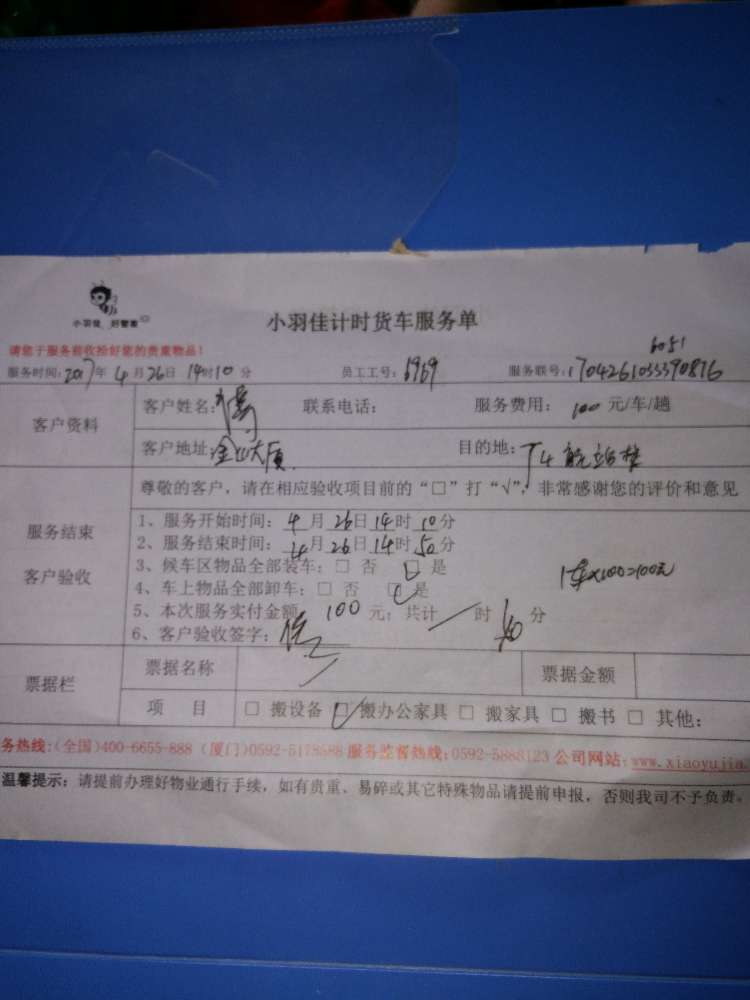 小羽佳 好管家
小羽佳计时货车服务单
请您于服务前收拾好您的贵重物品!
6051
服务时间:2017年4月26日14时10分 员工工号:6969 服务联号:170426103339
客户资料
客户姓名: 联系电话: 服务费用:100元/车/趟
客户地址: 大厦 目的地:T4航站楼
服务结束
客户验收
尊敬的客户,请在相应验收项目前的“□”打“√”,非常感谢您的评价和意见
1、服务开始时间:4月26日14时10分
2、服务结束时间:4月26日14时50分
3、候车区物品全部装车:□ 否 □ 是
4、车上物品全部卸车:□ 否 □ 是
1车×100=100元
5、本次服务实付金额:100元;共计/时40分
6、客户验收签字:
票据栏
票据名称 票据金额
项 目 □ 搬设备 □ 搬办公家具 □ 搬家具 □ 搬书 □ 其他:
务热线:(全国)400-6655-888 (厦门)0592-5178588 服务监督热线:0592-5888123 公司网站:www.xiaoyujia.
温馨提示:请提前办理好物业通行手续,如有贵重、易碎或其它特殊物品请提前申报,否则我司不予负责。